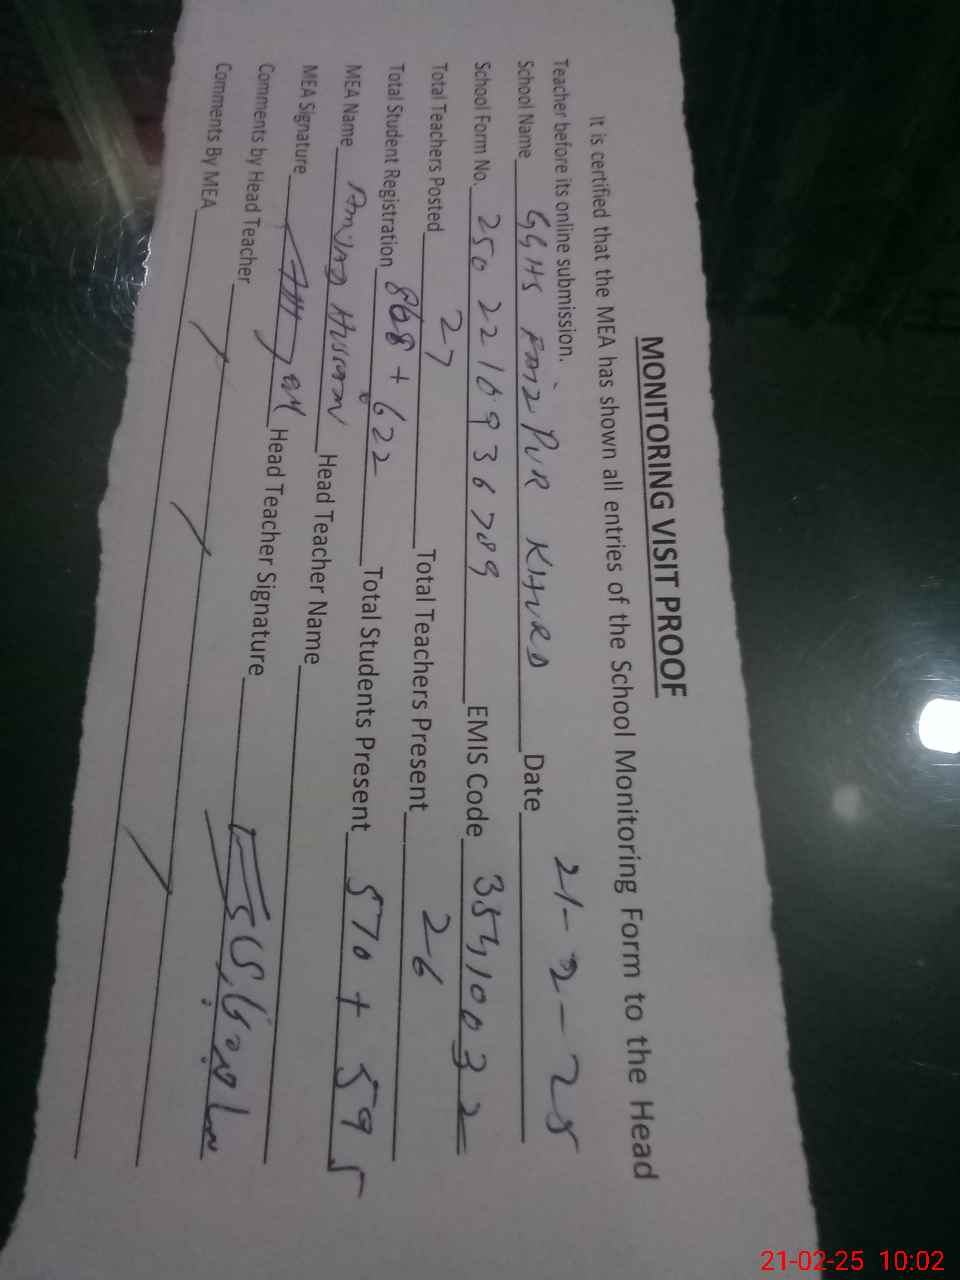 MONITORING VISIT PROOF
It is certified that the MEA has shown all entries of the School Monitoring Form to the Head
Teacher before its online submission.
School Name GGHS FAIZ PUR KHURD Date 21-2-25
School Form No. 2502216936789 EMIS Code 35410032
Total Teachers Posted 27 Total Teachers Present 26
Total Student Registration 868 + 622 Total Students Present 570 + 595
MEA Name Amjad Hussain Head Teacher Name
MEA Signature Head Teacher Signature
Comments by Head Teacher
Comments By MEA
21-02-25 10:02